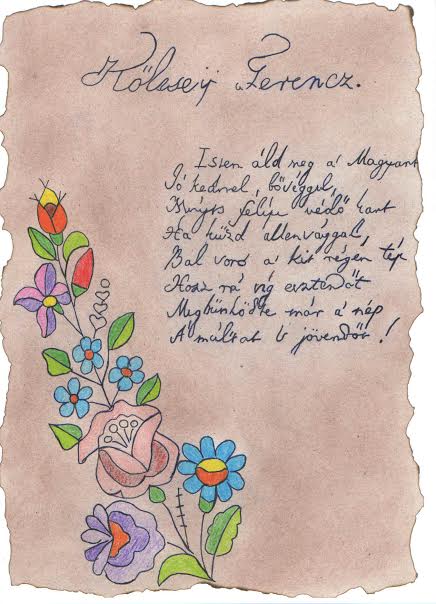 Kölcsey Ferencz.
Isten áld meg a' Magyart
Jó kedvvel, bőséggel,
Nyújts feléje védő kart
Ha küzd ellenséggel,
Bal sors a' kit régen tép
Hozz rá víg esztendőt
Megbűnhődte már a' nép
A múltat 's jövendőt!